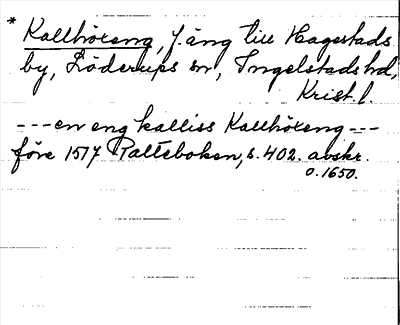 * Kallhöxeng, f. äng till Hagestads
by, Löderups sn, Ingelstads hd,
Krist. l.
--- en eng kalliss Kallhöxeng ---
före 1517 Palteboken, s. 402. avskr.
o. 1650.